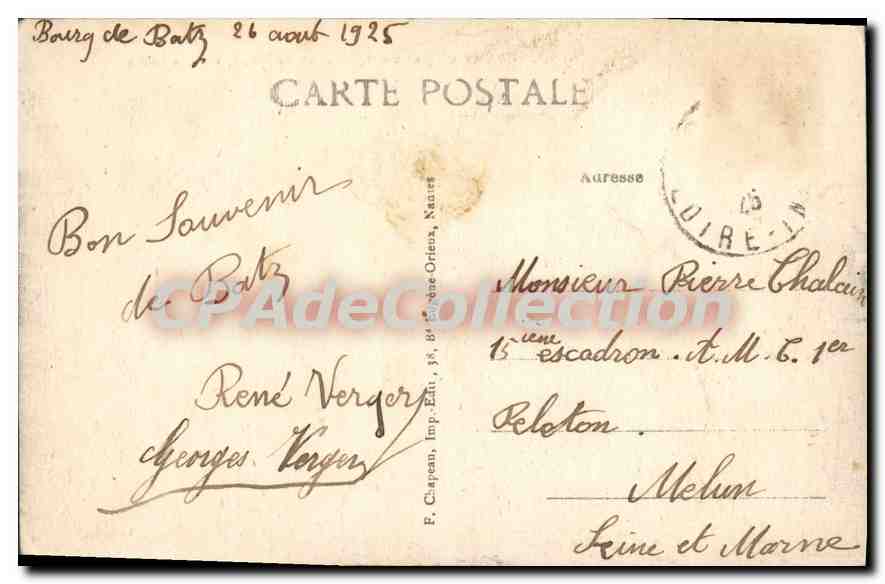 Bourg de Batz 26 aout 1925
CARTE POSTALE
Adresse
25
LOIRE-IN
Bon Souvenir
de Batz
René Verger
Georges Verger
F. Chapeau, Imp.-Édit., 38, Bd Eugène-Orieux, Nantes
Monsieur Pierre Chalain
15ième escadron . A. M. C. 1er
Peloton.
Melun
Seine et Marne
CPAdeCollection